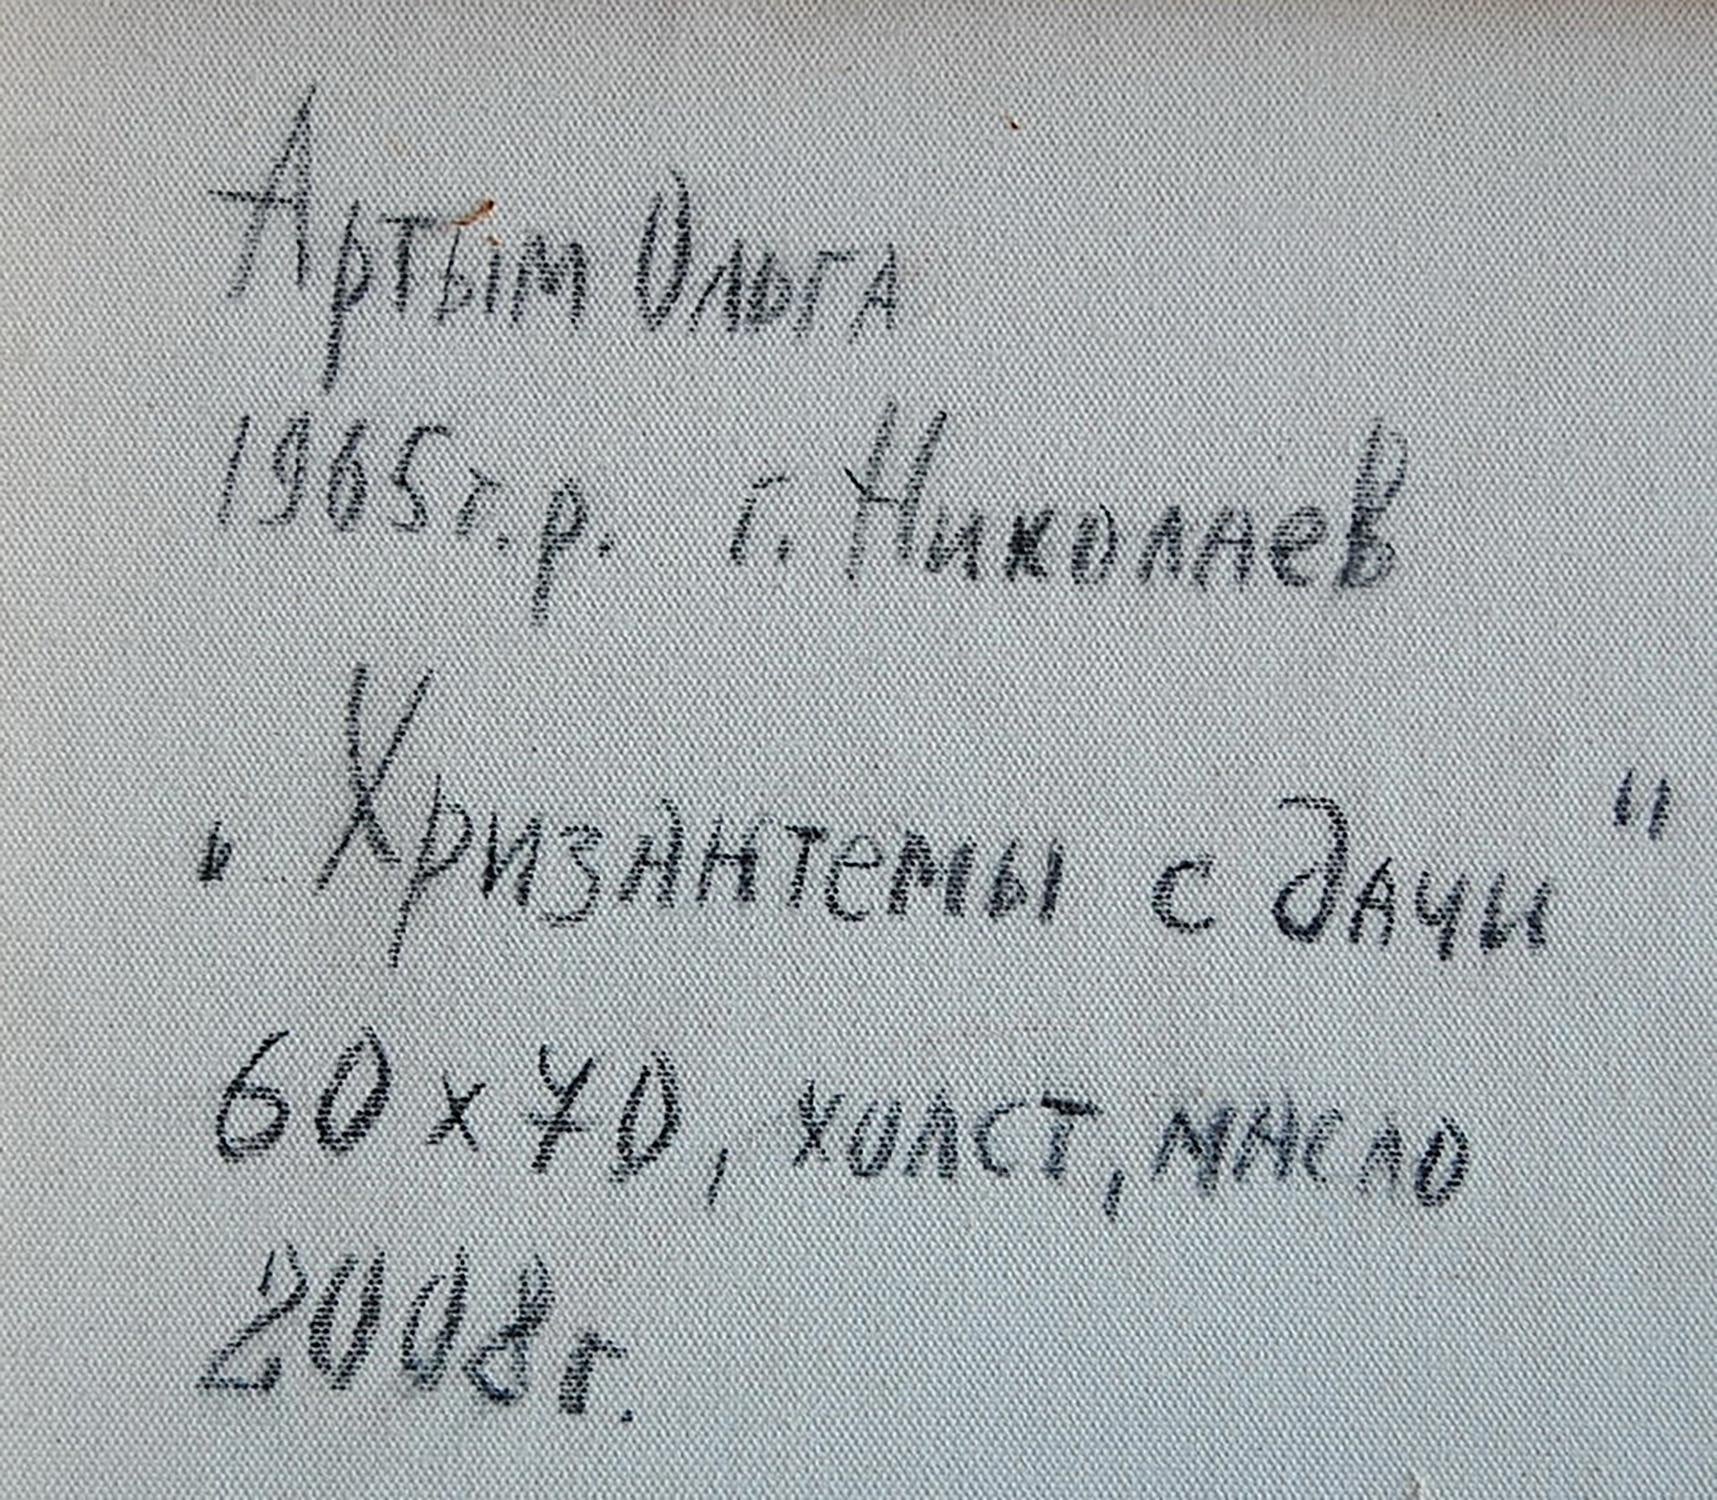 Артым Ольга
1965г.р. г. Николаев
„Хризантемы с дачи"
60х70, холст, масло
2008г.